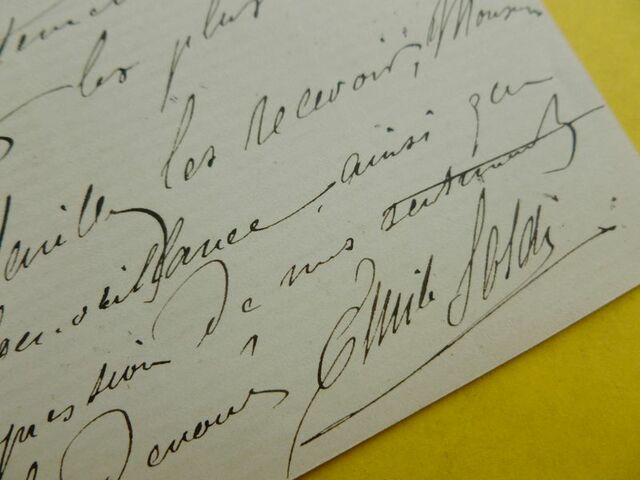 les plus
les recevoir, Monsieur
bienveillance, ainsi que
pression de mes sentiments
dévoués Emile Soldi